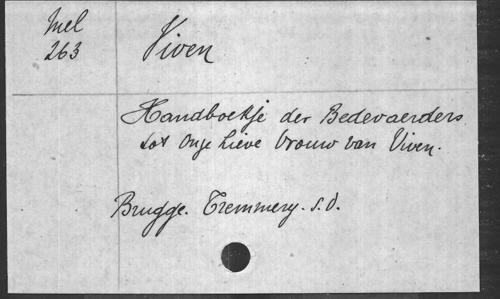 Mel
263
Viven
Handboekje der Bedevaerders
tot Onze Lieve Vrouw van Viven.
Brugge. Tremmery. s.d.